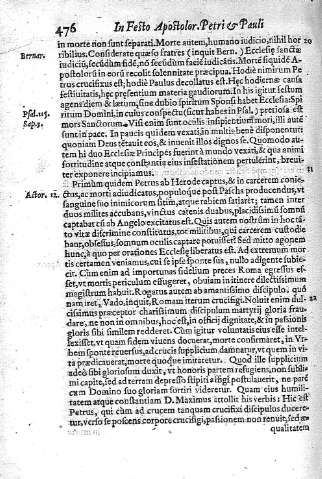 476 In Festo Apostolor. Petri & Pauli
in morte non sunt separati. Morte autem, humano iudicio, nihil hor 20
Bernar. ribilius. Considerate quæso fratres (inquit Bern.) Ecclesiæ sanctæ
iudicium, secundum fidē, nō secundum faciē iudicātis. Morte siquidē A-
postolorū in eorū recolit solenitate præcipua. Hodiè nimirum Pe
trus crucifixus est; hodiè Paulus decollatus est. Hęc hodiernæ causa
festiuitatis, hęc præsentium materia gaudiorum. In his igitur festum
agens diem & lætum, sine dubio spiritum Sponsi habet Ecclesia: Spi
Psal. 115. ritum Domini, in cuius conspectu (sicut habes in Psal.) pretiosa est
Sap. 3. mors Sanctorum. Visi enim sunt oculis insipientium mori, illi autē
sunt in pace. In paucis quidem vexati, in multis benè disponentur:
quoniam Deus tētauit eos, & inuenit illos dignos se. Quomodo au-
tem hi duo Ecclesiæ Principes fuerint à mundo vexati, & qua animi
fortitudine atque constantia eius infestationem pertulerint, breui-
ter exponere incipiamus. 21
Primùm quidem Petrus ab Herode captus, & in carcerem coniec-
Actor. 12. ctus, ac morti adiudicatus, populo post Pascha producendus, vt
sanguine suo inimicorum sitim, atque rabiem satiaret; tamen inter
duos milites accubans, vinctus catenis duabus, placidissimū somnū
captabat
vitæ discrimine constitutus, tot militibus, qui carcerem custodie
bant, obsessus, somnum oculis captare potuisset? Sed multo agonem
hunc, à quo per orationes Ecclesiæ liberatus est. Ad extremum mor
tis certamen veniamus, cui se ipse sponte sua, nullo adigente subie-
cit. Cùm enim ad importunas fidelium preces Roma egressus es-
set, vt mortis periculum effugeret, obuiam in itinere dilectissimum
magistrum habuit. Rogatus autem ab amantissimo discipulo, quò
nam iret, Vado, inquit, Romam iterum crucifigi. Noluit enim dul- 22
cissimus præceptor charissimum discipulum martyrij gloria frau-
dare, ne non in omnibus, hoc est, in officij dignitate, & in passionis
gloria sibi similem redderet. Cùm igitur voluntatis eius esse intel-
lexisset, vt quam fidem viuens docuerat, morte confirmaret, in Vr-
bem sponte reuersus, ad crucis supplicium damnatur, vt quem in vi-
ta prædicauerat, morte quoque imitaretur. Quod ille supplicium
adeò sibi gloriosum duxit, vt honoris partem refugiens, non subli-
mi capite, sed ad terram depresso stipiti affigi postulauerit, ne par
cum Domino suo gloriam sortiri videretur. Quam eius humili-
tatem atque constantiam D. Maximus attollit his verbis: Hic est
Petrus, qui cùm ad crucem tanquam crucifixi discipulus ducere-
tur, verso se poscens corpore crucifigi, passionem non renuit, sed æ-
qualitatem